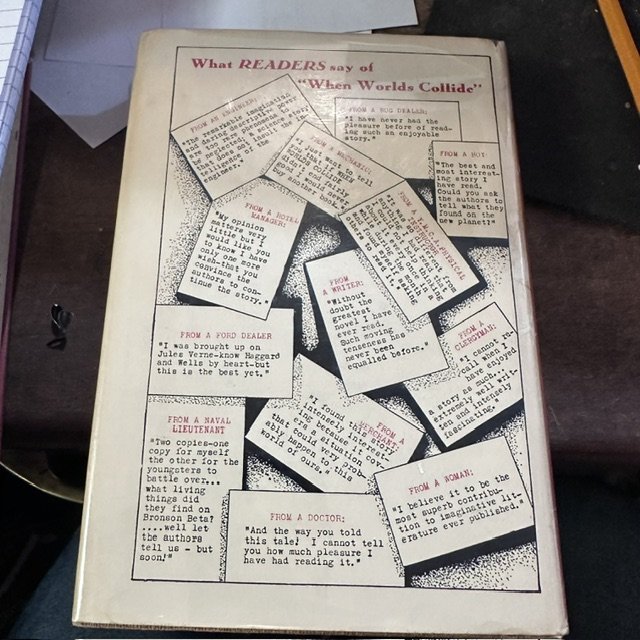 What READERS say of
"When Worlds Collide"
FROM AN ENGINEER:
"The remarkable imagination
and daring descriptive power
are too rare phenomena to
be neglected. A science story
that does not insult the in-
telligence of the
engineer."
FROM A RUG DEALER:
"I have never had the
pleasure before of read-
ing such an enjoyable
story."
FROM A MECHANIC:
"I just want to tell
you that if WHEN
WORLDS COLLIDE
didn't end fairly
good I would never
buy another book."
FROM A BOY:
"The best and
most interest-
ing story I
have read.
Could you ask
the authors to
tell what they
found on the
new planet?"
FROM A HOTEL
MANAGER:
"My opinion
matters very
little but I
would like you
to know I have
only one more
wish-that you
convince the
authors to con-
tinue the story."
FROM A Y.M.C.A. PHYSICAL
INSTRUCTOR:
"I was
different from
and that
thinking
about
once in a
the month
asking
others to read it."
FROM
A WRITER:
"Without
doubt the
greatest
novel I have
ever read.
Such moving
tenseness has
never been
equalled before."
FROM A FORD DEALER
"I was brought up on
Jules Verne-know Haggard
and Wells by heart-but
this is the best yet."
FROM A
CLERGYMAN:
"I cannot re-
call when I
have enjoyed
a story as much...it's
extremely well writ-
ten and intensely
fascinating."
FROM A NAVAL
LIEUTENANT
"Two copies-one
copy for myself
the other for the
youngsters to
battle over...
what living
things did
they find on
Bronson Beta?
....well let
the authors
tell us - but
soon!"
FROM A
MERCHANT:
"I found this story
intensely interest-
ing because it cov-
era a situation
that could very prob-
ably happen to this
world of ours."
FROM A WOMAN:
"I believe it to be the
most superb contribu-
tion to imaginative lit-
erature ever published."
FROM A DOCTOR:
"And the way you told
this tale! I cannot tell
you how much pleasure I
have had reading it."